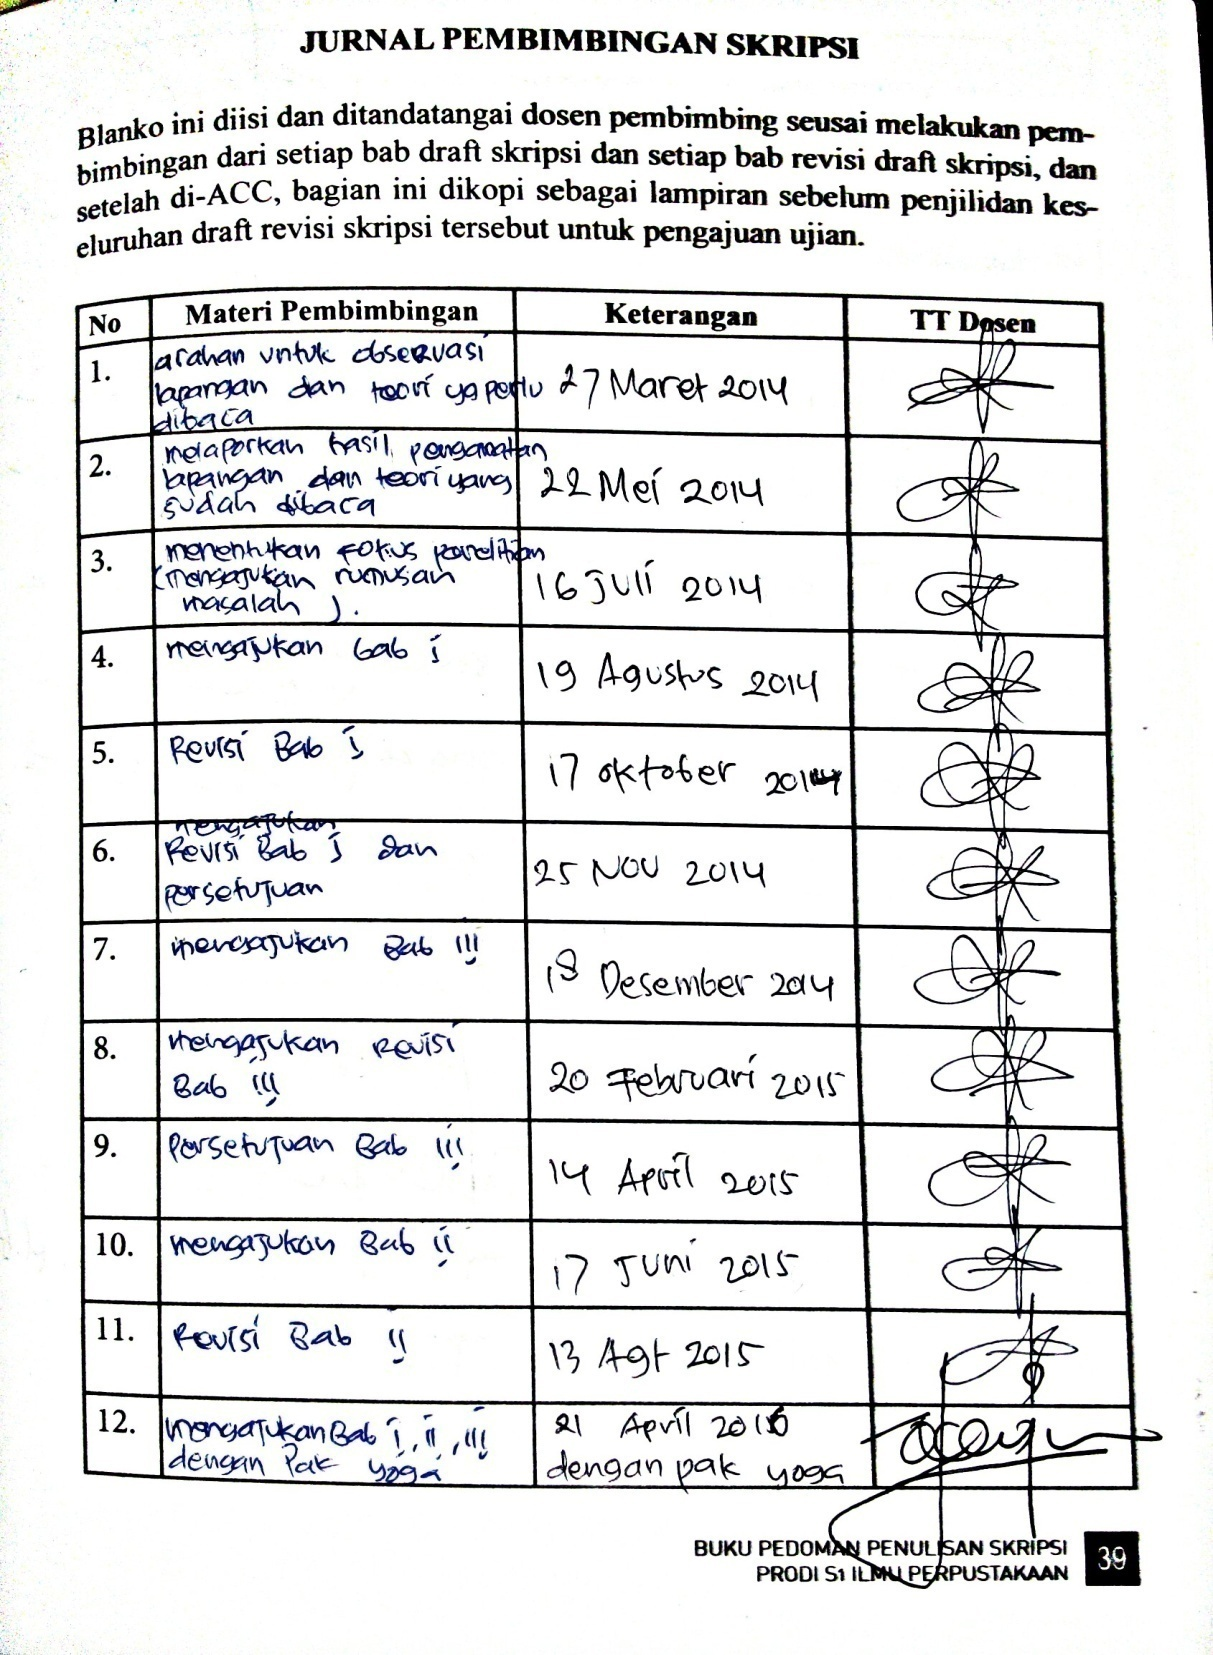 JURNAL PEMBIMBINGAN SKRIPSI
Blanko ini diisi dan ditandatangai dosen pembimbing seusai melakukan pem-
bimbingan dari setiap bab draft skripsi dan setiap bab revisi draft skripsi, dan
setelah di-ACC, bagian ini dikopi sebagai lampiran sebelum penjilidan kes-
eluruhan draft revisi skripsi tersebut untuk pengajuan ujian.
No Materi Pembimbingan Keterangan TT Dosen
1. arahan untuk observasi
lapangan dan teori yg perlu 27 Maret 2014
dibaca
2. melaporkan hasil pengamatan
lapangan dan teori yang 22 Mei 2014
sudah dibaca
3. menentukan fokus penelitian
(mengajukan rumusan 16 Juli 2014
masalah ).
4. mengajukan bab i
19 Agustus 2014
5. Revisi Bab i
17 oktober 2014
mengajukan
6. Revisi Bab i dan
persetujuan 25 NOV 2014
7. mengajukan Bab iii
18 Desember 2014
8. mengajukan Revisi
Bab iii 20 Februari 2015
9. Persetujuan Bab iii
14 April 2015
10. mengajukan Bab ii
17 Juni 2015
11. Revisi Bab ii
13 Agt 2015
12. mengajukan Bab i, ii, iii 21 April 2016
dengan Pak yoga dengan pak yoga
BUKU PEDOMAN PENULISAN SKRIPSI
PRODI S1 ILMU PERPUSTAKAAN
39